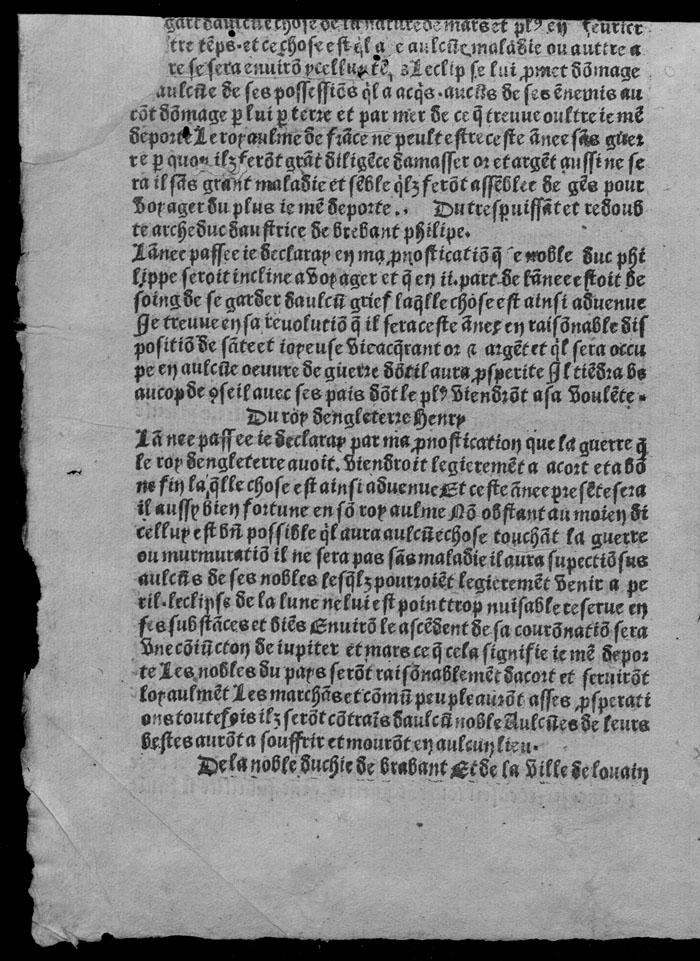 gart daulcūe chose de la nature de mars et pl⁹ en feurier
tre tēps. et ce chose est q̄l a e aulcūe maladie ou aultre a
re se sera enuirō ycelluy tē, Leclipse lui ꝓmet dōmage
aulcūe de ses possessiōs q̄l a acqs. aucūs de ses ēnemis au
rōt dōmage p lui p terre et par mer de ce q̄ treuue oultre ie mē
deporte Le royaulme de frāce ne peult estre ceste ānee sās guer
re p quoy ilz ferōt grāt diligēce damasser or et argēt aussi ne se
ra il sās grant maladie et sēble q̄lz ferōt assēblee de gēs pour
voyager du plus ie mē deporte. Du trespuissāt et redoub
te archeduc daustrice de brebant philipe.
Lānee passee ie declaray en ma ꝓnosticatiō q̄ e noble duc phi
lippe seroit incline a voyager et q̄ en ii. part de lānee estoit be
soing de se garder daulcū grief laq̄lle chose est ainsi aduenue
Je treuue en sa reuolutiō q̄ il sera ceste ānee en raisōnable dis
positiō de sāte et ioyeuse vie acq̄rant or ⁊ argēt et q̄l sera occu
pe en aulcūe oeuure de guerre dōt il aura ꝓsperite Il tiēdra be
aucop de ꝯseil auec ses pais dōt le pl⁹ viendrōt a sa voulēte.
Du roy dengleterre Henry
Lānee passee ie declaray par ma ꝓnostication que la guerre q̄
le roy dengleterre auoit. viendroit legieremēt a acort et a bō
ne fin la q̄lle chose est ainsi aduenue Et ceste ānee presēte sera
il aussy bien fortune en sō royaulme Nō obstant au moien di
celluy est bn̄ possible q̄l aura aulcūe chose touchāt la guerre
ou murmuratiō il ne sera pas sās maladie il aura supectiō sus
aulcūs de ses nobles lesq̄lz pourroiēt legieremēt venir a pe
ril. leclipse de la lune ne lui est point trop nuisable reserue en
ses substāces et biēs Enuirō le ascēdent de sa courōnatiō sera
vne cōiūction de iupiter et mars ce q̄ cela signifie ie mē depor
te Les nobles du pays serōt raisōnablemēt dacort et seruirōt
loyaulmēt Les marchās et cōmū peuple aurōt asses ꝓsperati
ons toutefois ilz serōt cōtraīs daulcū noble Aulcūes de leurs
bestes aurōt a souffrir et mourōt en aulcun lieu.
De la noble duchie de brabant Et de la ville de louain